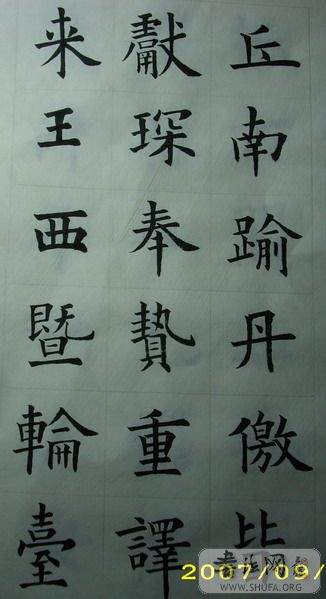 丘南踰丹儌皆
獻琛奉贄重譯
来王西暨輪臺
2007/09/
書法网
WWW.SHUFA.ORG